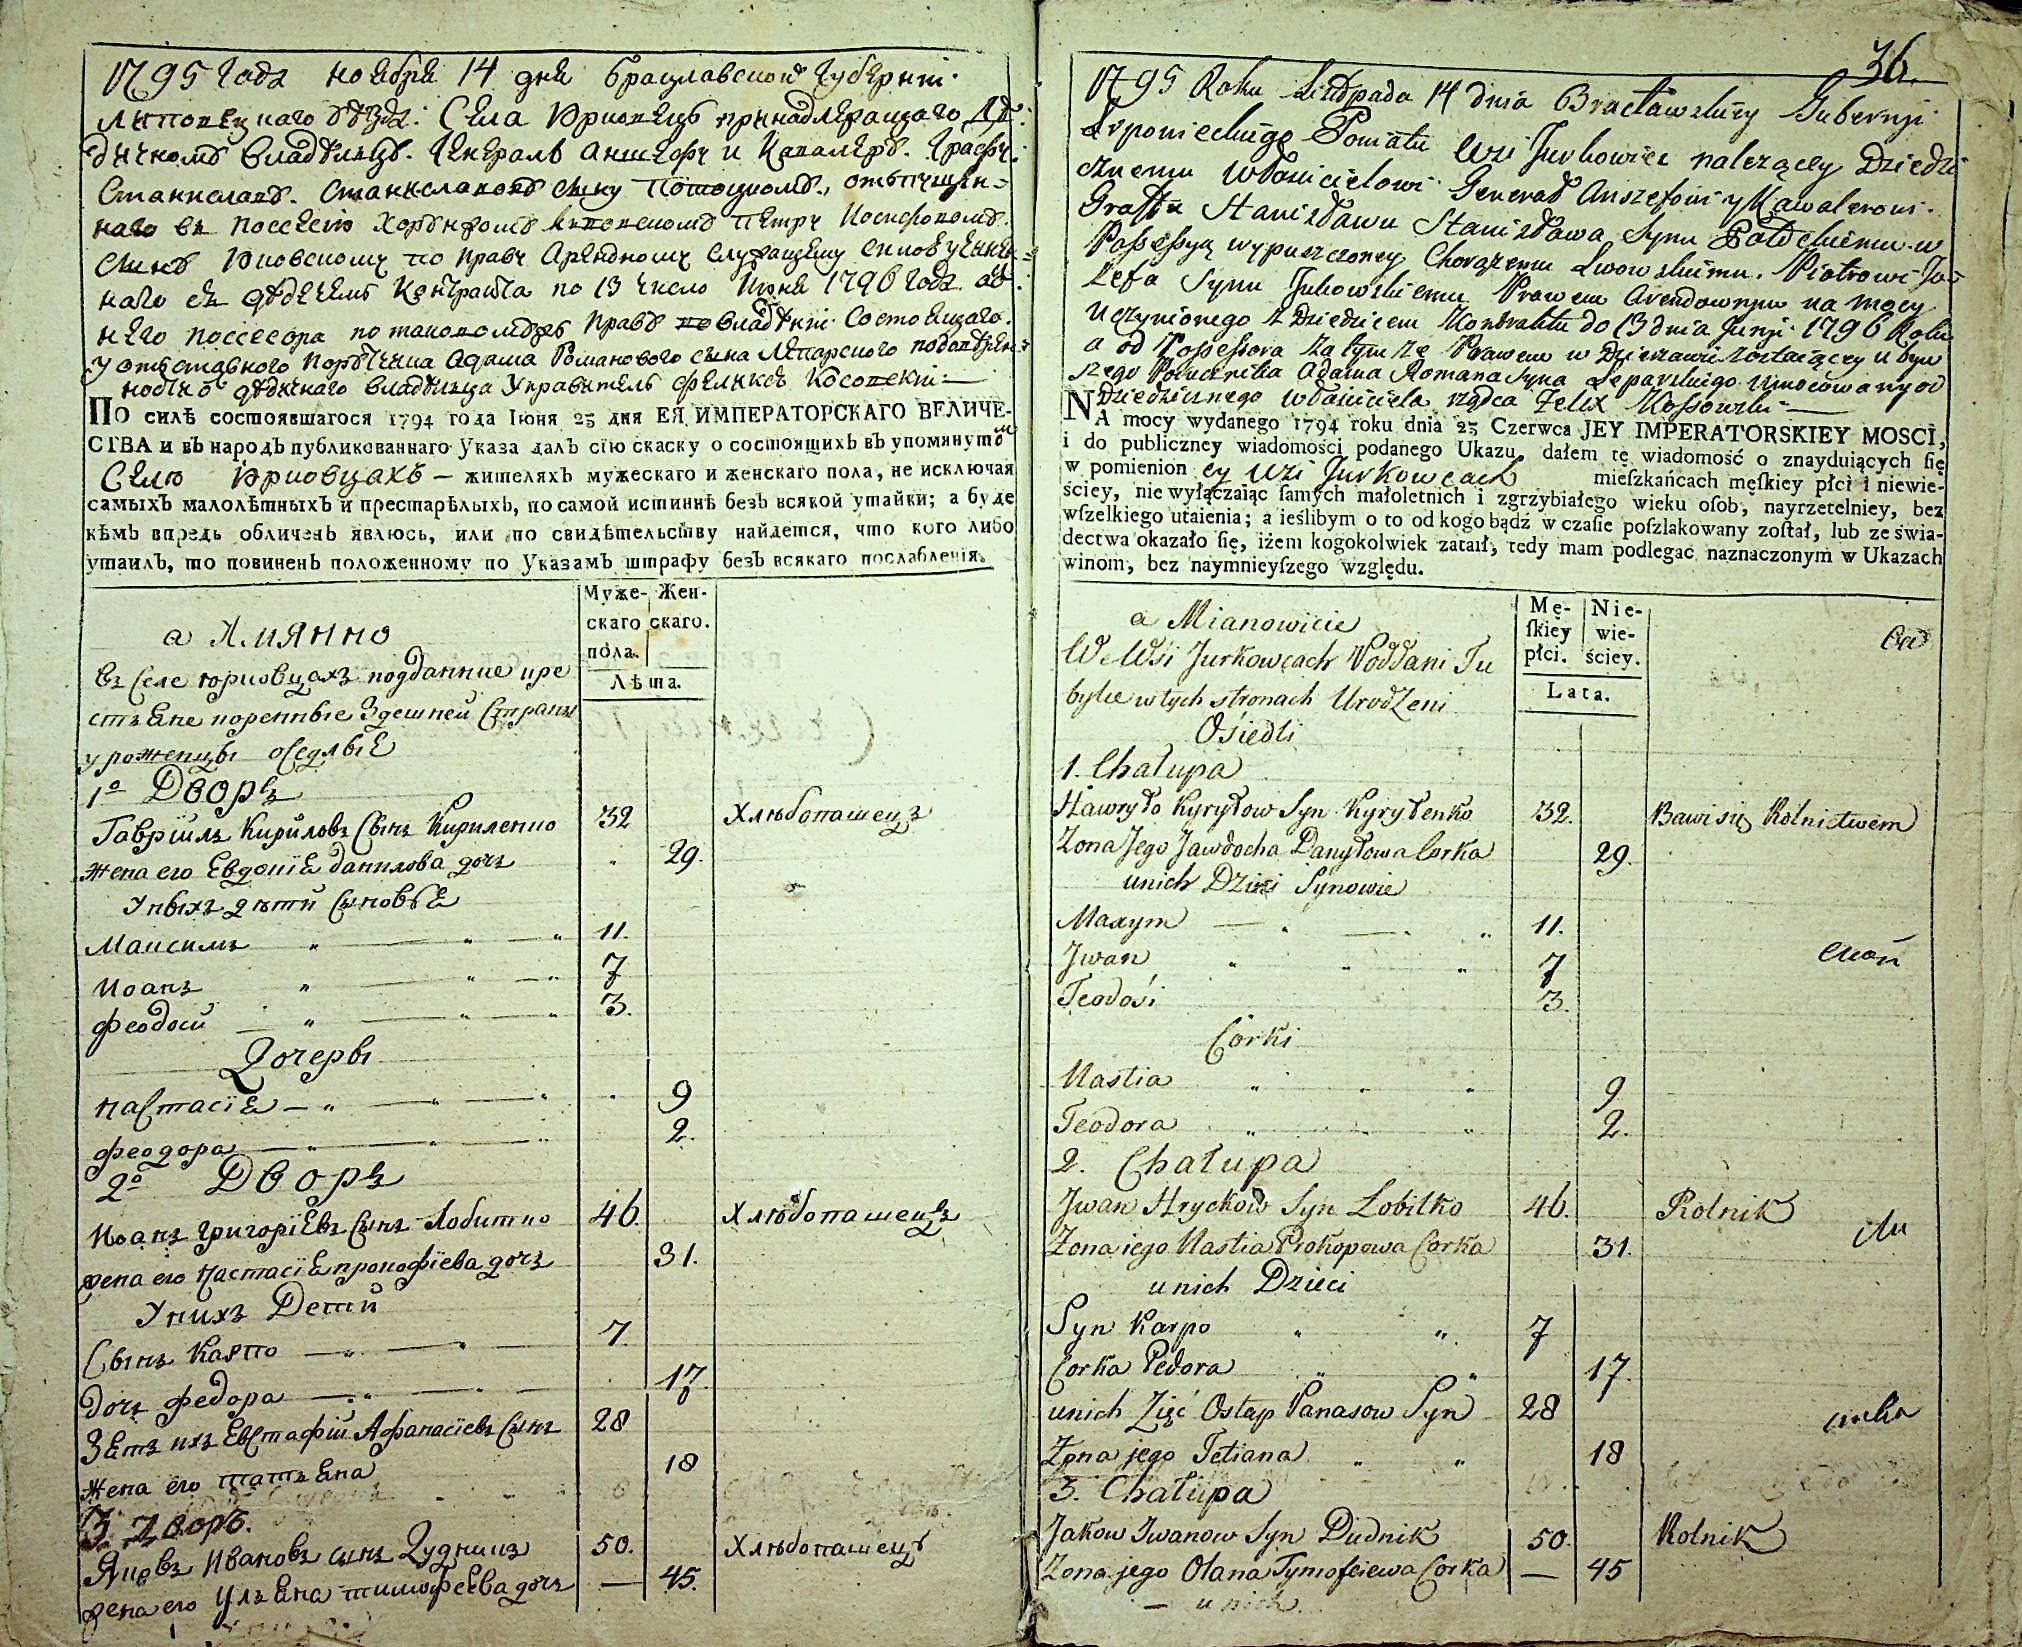 1795 Года ноября 14 дня Брацлавской Губерніи
Липовецкаго Села принадлежащаго
владѣльцѣ. Генералъ Аншефу и Кавалеръ. Графу
Станиславъ. сыну отъпущен-
наго въ поссесію Петру Иосифовомъ
сынъ по праву Арендному служащему
наго съ Контракта по 13 число Июня 1796 Года
него поссесора по праву
у отъставного Адама Романового сына
владѣльца Управитель Феликсъ Косовскій
ПО силѣ состоявшагося 1794 года Іюня 23 дня ЕЯ ИМПЕРАТОРСКАГО ВЕЛИЧЕ-
СТВА и въ народъ публикованнаго Указа далъ сію скаску о состоящихъ въ упомянутом
Селѣ Юрковцахъ — жителяхъ мужескаго и женскаго пола, не исключая
самыхъ малолѣтныхъ и престарѣлыхъ, по самой истиннѣ безъ всякой утайки; а буде
кѣмъ впредь обличенъ явлюсь, или по свидѣтельству найдется, что кого либо
утаилъ, то повиненъ положенному по Указамъ штрафу безъ всякаго послабленія.
Муже- Жен-
скаго скаго.
пола.
Лѣта.
а Имянно
въ Селе Юрковцахъ подданные кре
стьяне коренные Здешней Страны
уроженцы оседлые
1º Дворъ
Гаврїилъ Кириловъ Сынъ Кириленко 32 Хлѣбопашецъ
жена его Евдокїя данилова дочъ 29.
У ныхъ дѣти Сыновья
Максимъ 11.
Иоанъ 7
Феодосй 3.
Дочеры
настасїя 9
феодора 2.
2º Дворъ
Иоанъ григорїевъ Сынъ Лобитко 46. Хлѣбопашецъ
жена его настасїя прокофїева дочъ 31.
У нихъ Дети
Сынъ Карпо 7.
дочъ федора 17.
Зять ихъ Евстафїй Афанасїевъ Сынъ 28
жена его татьяна 18
3 дворъ.
Яковъ Ивановъ сынъ Дудникъ 50. Хлѣбопашецъ
жена его ульяна тимофеева дочъ — 45.
36.
1795 Roku Listopada 14 dnia Bracławskiey Gubernji
Lipowieckiego Powiatu Wsi Jurkowiec należącey Dziedzi
cznemu Włascicielowi Generał Anszefowi y Kawalerowi.
Graffu Stanisławu Stanisława Synu Potockiemu w
Possessyą wypuszczoney Chorążemu Lwowskiemu. Piotrowi Jó
zefa Synu Jukowskiemu Prawem Arendownym na mocy
Uczynionego z Dziedzicem Kontraktu do 13 dnia Junji 1796 Roku
a od Possessora za tym ze Prawem w Dzierzawie zostaiącey u byw
szego Porucznika Adama Romana Syna Leparskiego Umocowany od
Dziedzicznego Własciciela rządca Felix Kossowski —
NA mocy wydanego 1794 roku dnia 23 Czerwca JEY IMPERATORSKIEY MOSCI,
i do publiczney wiadomości podanego Ukazu dałem tę wiadomość o znayduiących się
w pomienioney Wsi Jurkowcach mieſzkańcach męſkiey płci i niewie-
ściey, nie wyłączaiąc ſamych małoletnich i zgrzybiałego wieku oſob, nayrzetelniey, bez
wſzelkiego utaienia; a ieślibym o to od kogo bądź w czaſie poſzlakowany zoſtał, lub ze świa-
dectwa okazało się, iżem kogokolwiek zataił, tedy mam podlegać naznaczonym w Ukazach
winom, bez naymnieyſzego względu.
Mę- Nie-
ſkiey wie-
płci. ściey.
Lata.
a Mianowicie
We Wsi Jurkowcach Poddani Tu
bylce w tych stronach Urodzeni
Osiedli
1. Chałupa
Hawryło Kyryłow Syn Kyryłenko 32. Bawi się Rolnictwem
Zona Jego Jawdocha Danyłowa Corka 29.
u nich Dzieci Synowie
Maxym 11.
Jwan 7
Teodosi 3.
Córki
Nastia 9
Teodora 2.
2. Chałupa
Jwan Hryckow Syn Lobitko 46. Rolnik
Zona iego Nastia Prokopowa Corka 31.
u nich Dzieci
Syn Karpo 7
Corka Fedora 17.
u nich Zięć Ostap Panasow Syn 28
Zona jego Tetiana 18
3. Chałupa
Jakow Jwanow Syn Dudnik 50. Rolnik
Zona jego Olana Tymofeiewa Corka — 45
— u nich